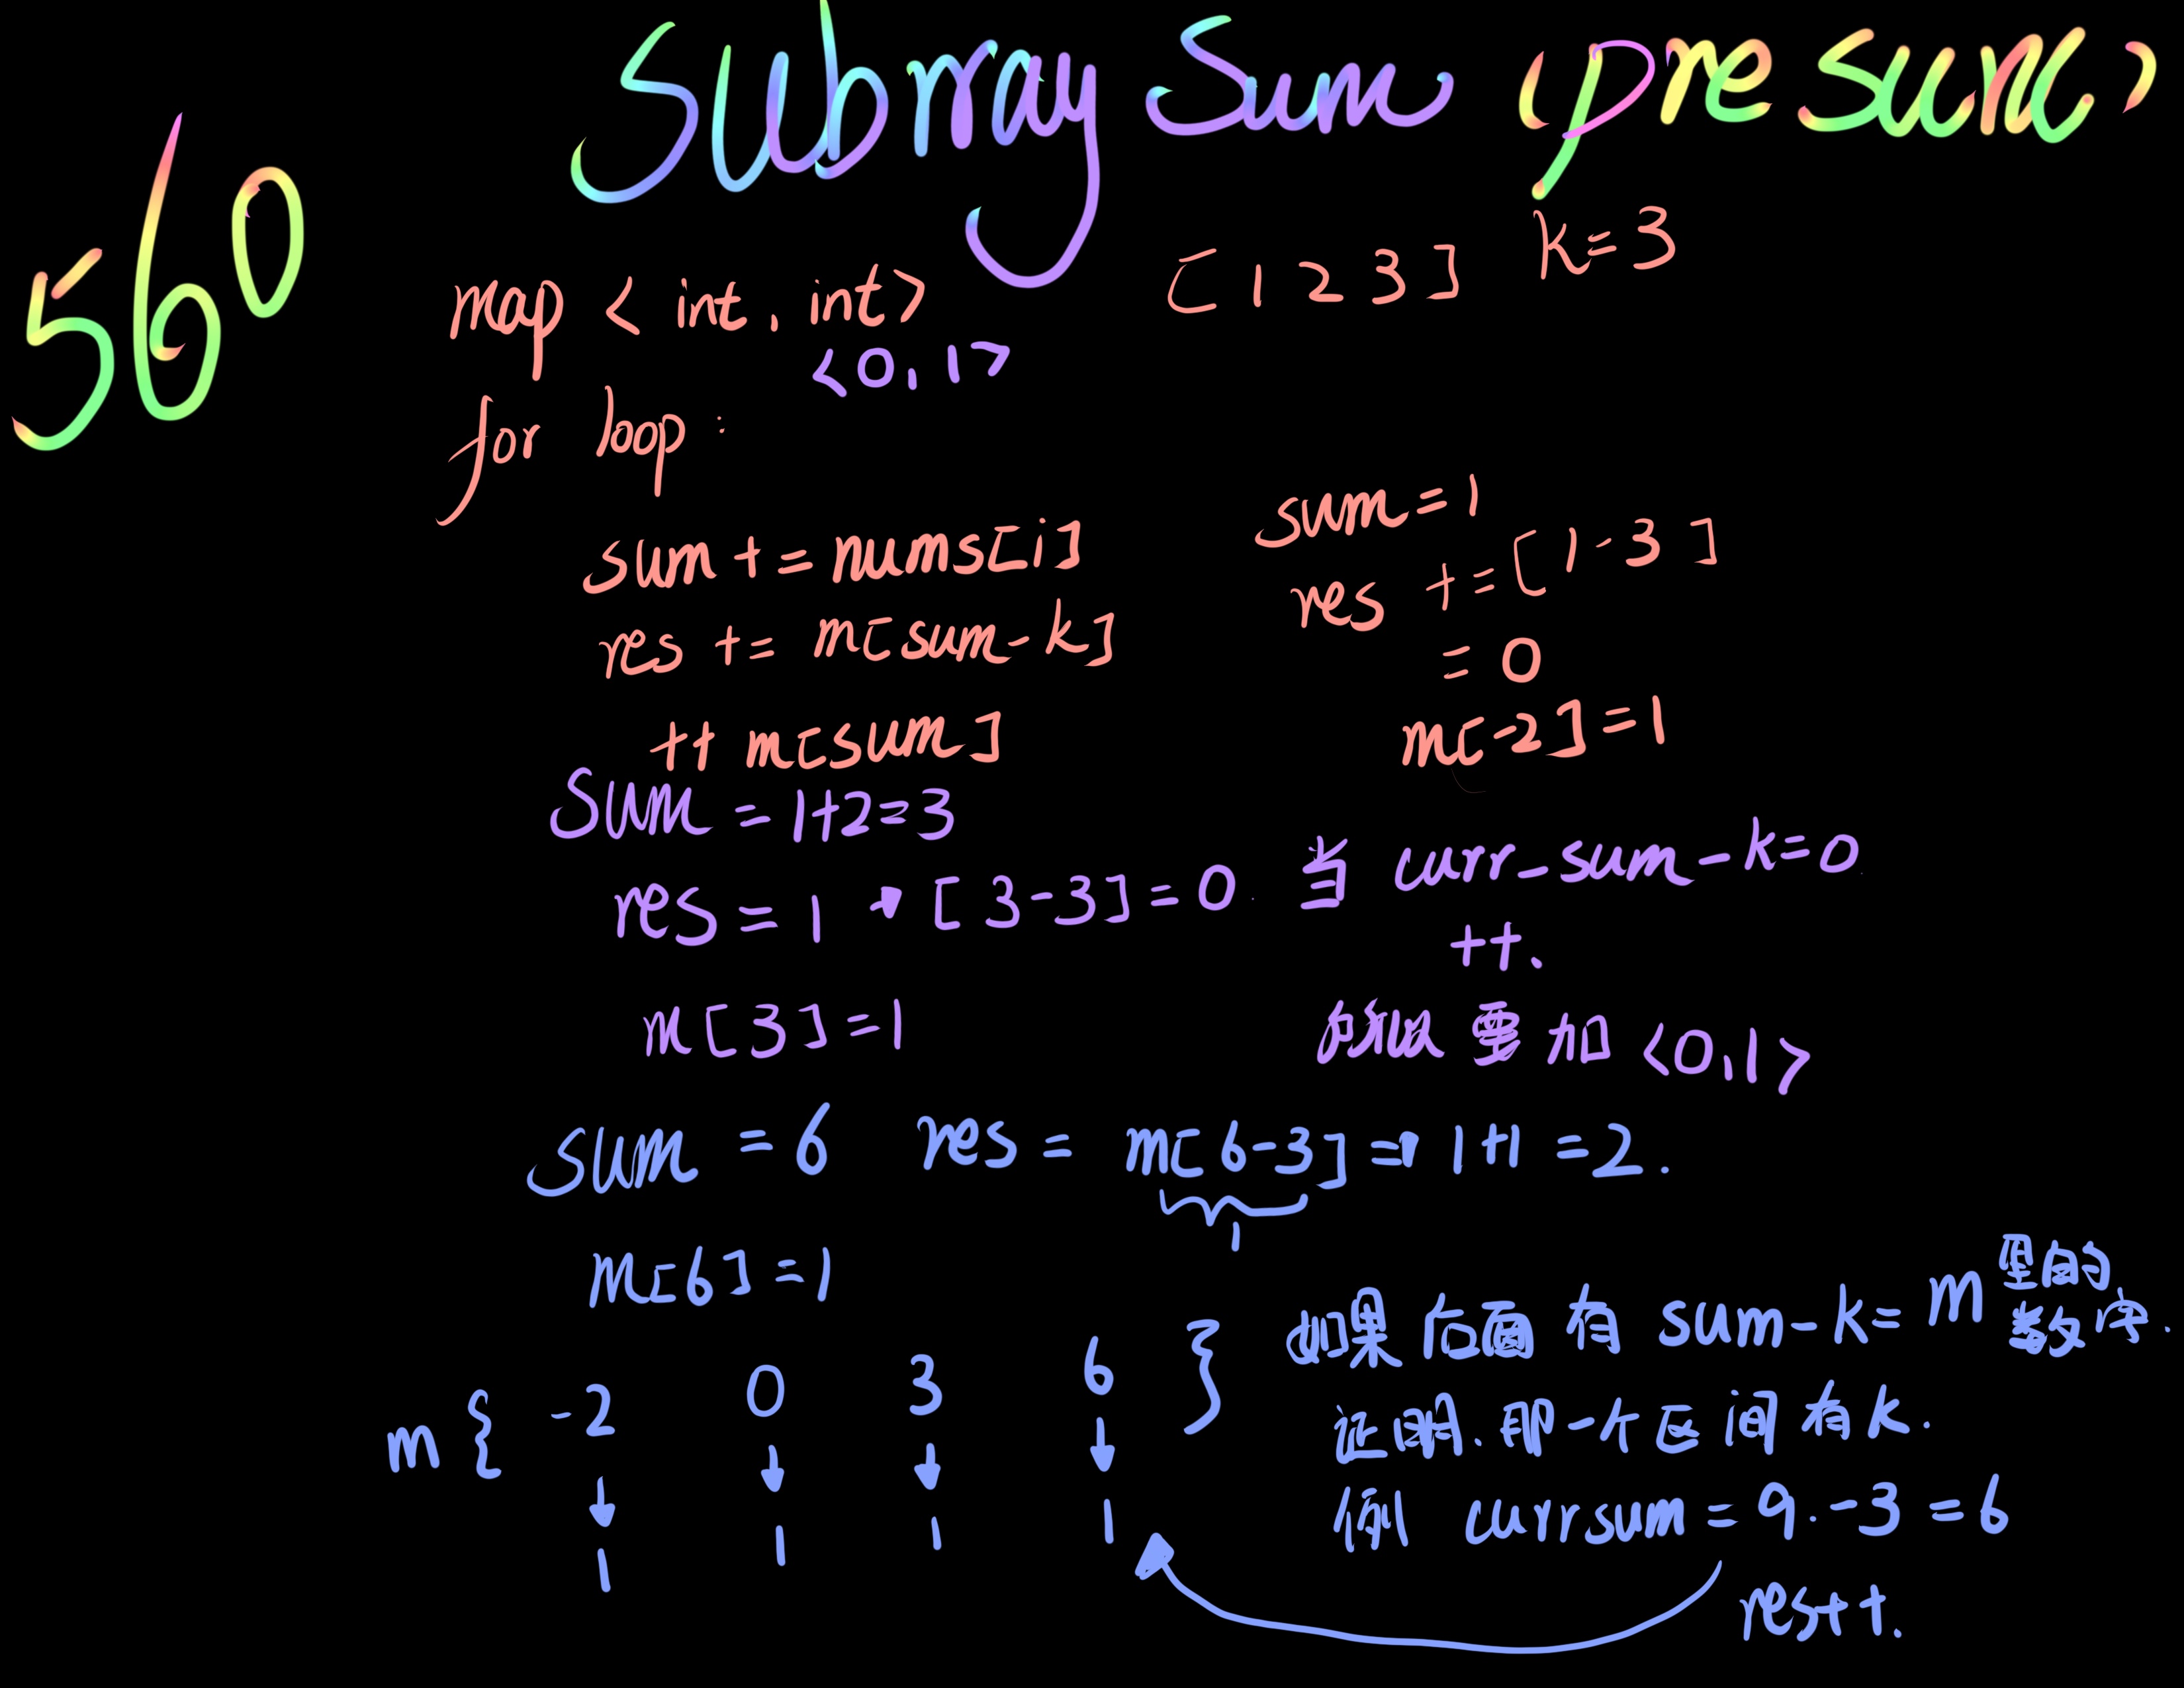 560
Subrray Sum (presum)
map < int, int>
[ 1 2 3 ] k=3
<0, 1>
for loop:
sum += nums[i]
res += m[sum-k]
++ m[sum]
sum = 1
res += [1-3]
= 0
m[-2] = 1
Sum = 1+2=3
res = 1 → [3-3] = 0.
m[3] = 1
当 curr-sum-k=0
++.
所以要加 <0,1>
sum = 6 res = m[6-3] ⇒ 1+1 = 2.
1
m[6] = 1
m { -2 0 3 6 }
1 1 1 1
如果后面有 sum-k = m 里面的数字.
证明.那一个区间有k.
例 curr sum = 9.-3 = 6
res++.